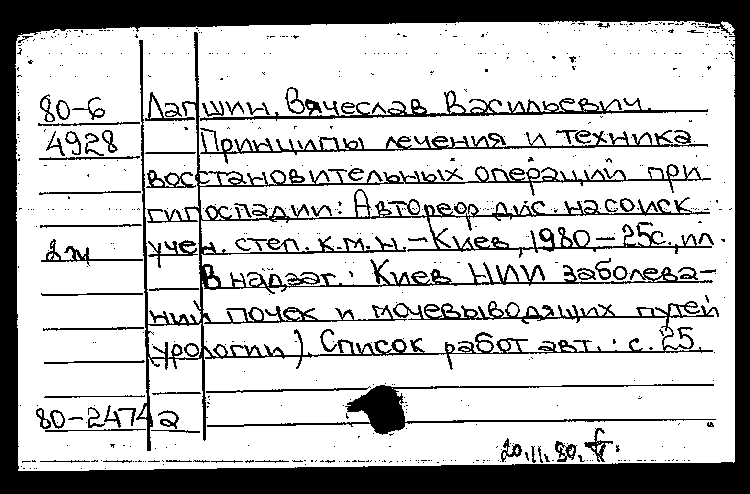 80-6 Лапшин, Вячеслав Васильевич.
4928 Принципы лечения и техника
восстановительных операций при
гипоспадии: Автореф. дис. на соиск.
2 эк учен. степ. к.м.н. – Киев, 1980. – 25с., ил.
В надзаг.: Киев. НИИ заболева-
ний почек и мочевыводящих путей
(урологии). Список работ авт.: с. 25.
80-2474а
20.11.80.